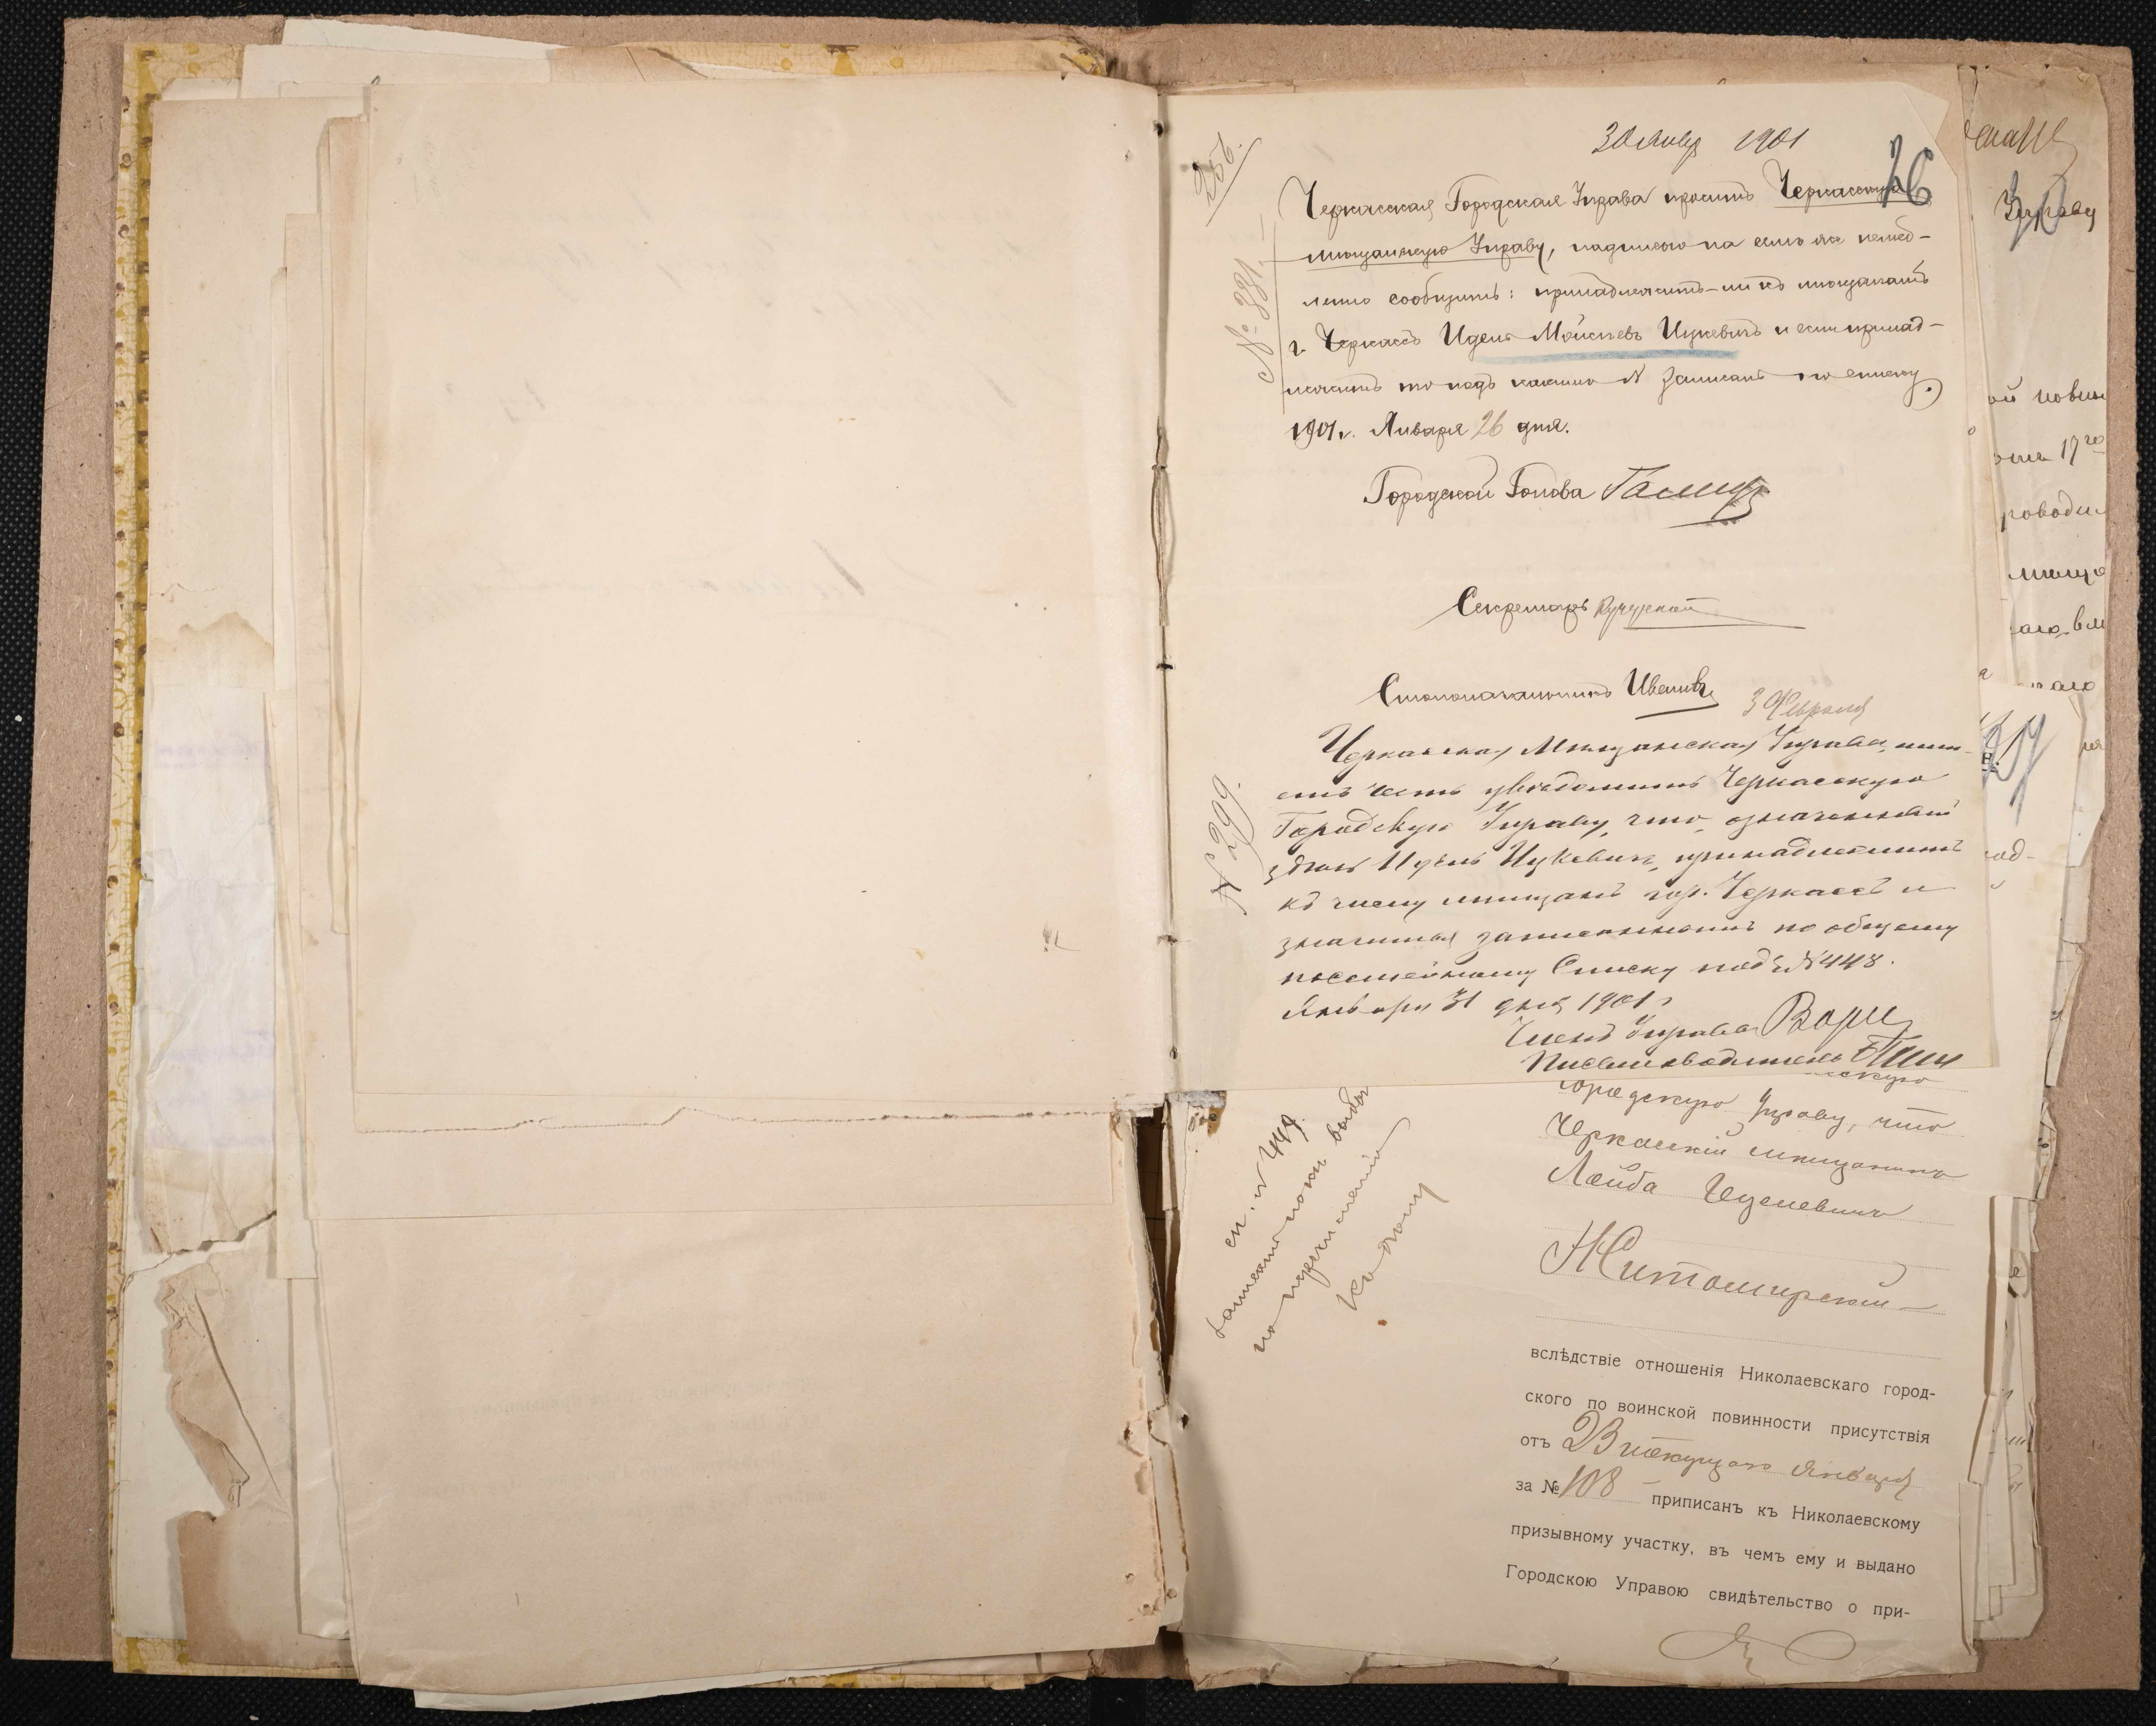 30 Янвр 1901
26
256.
№ 381.
Черкасская Городская Управа проситъ Черкасскую
мѣщанскую Управу, надписью на семъ же немед-
ленно сообщить: принадлежитъ-ли къ мѣщанамъ
г. Черкассъ Идель Мойсѣевъ Ицкевичъ и если принад-
лежитъ то подъ какимъ № записанъ по списку.
1901 г. Января 26 дня.
Городской Голова
Секретарь
Столоначальникъ
3 Февраля
№ 299.
Черкасская Мѣщанская Управа, имѣ-
етъ честь увѣдомить Черкасскую
Городскую Управу, что означенный
здѣсь Идель Ицкевичъ, принадлежитъ
къ числу мѣщанъ гор. Черкассъ и
значится записаннымъ по общему
посемейному Списку подъ № 448.
Января 31 дня 1901 г
Членъ Управы
Письмоводитель
Городскую Управу, что
Черкаскій мѣщанинъ
Лейба
Житомирскій
вслѣдствіе отношенія Николаевскаго город-
ского по воинской повинности присутствія
отъ 23 текущаго Января
за № 108 приписанъ къ Николаевскому
призывному участку, въ чемъ ему и выдано
Городскою Управою свидѣтельство о при-
сп. № 449.
Управу